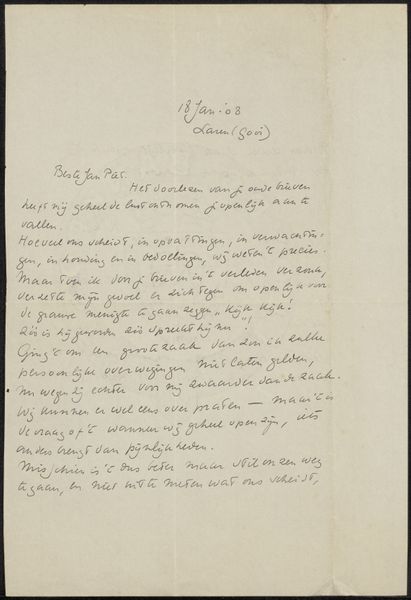 18 Jan. '08
Laren (Gooi)
Beste Jan Pat.
Het voorlezen van je oude brieven
heeft mij geheel de lust ontnomen je openlijk aan te
vallen.
Hoeveel ons scheidt, in opvattingen, in verwachtin-
gen, in houding en in bedoelingen, wij weten 't precies.
Maar toen ik door je brieven in 't verleden verzonk,
verzette mijn gevoel er zich tegen om openlijk voor
de grauwe menigte te gaan zeggen „Kijk Kijk!
zóó is hij geworden zóó oprecht hij nu"!
Ging 't om een groote zaak dan zou ik zulke
persoonlijke overwegingen niet laten gelden,
nu wegen zij echter voor mij zwaarder dan de zaak.
Wij kunnen er wel eens over praten — maar 't is
de vraag of 't wanneer wij geheel open zijn, iets
anders brengt dan pijnlijkheden.
Misschien is 't dus beter maar stil onzen weg
te gaan, en niet uit te meten wat ons scheidt,